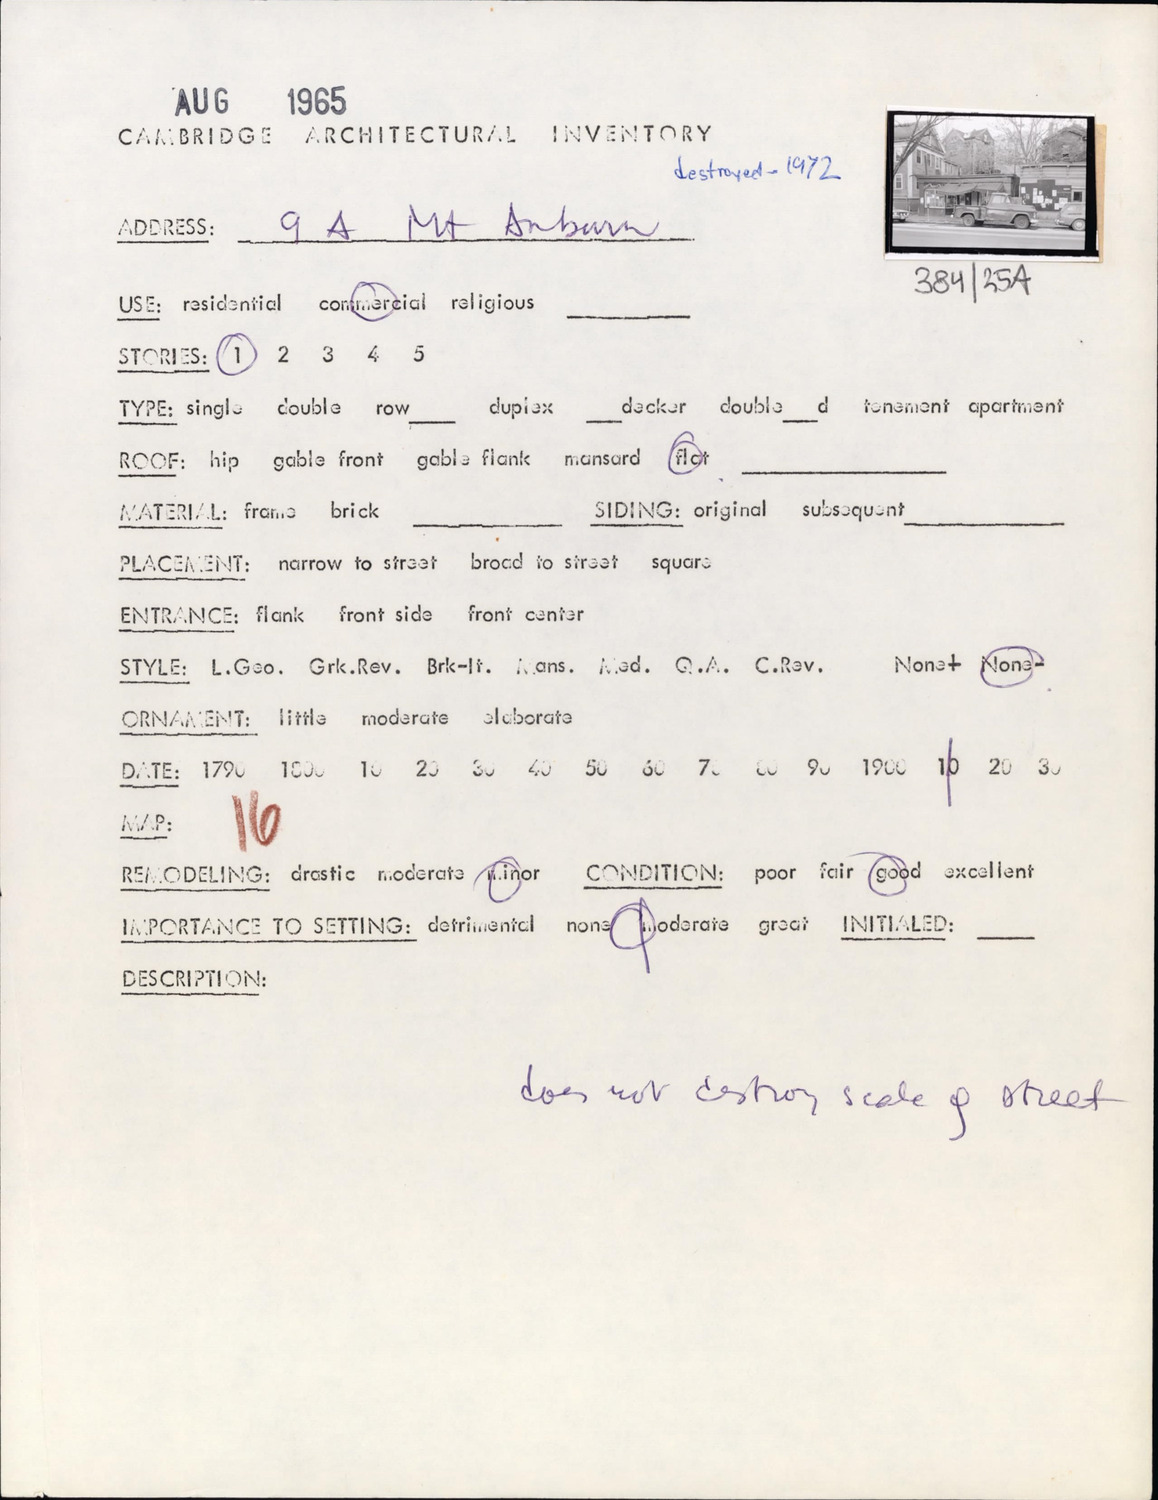 AUG 1965
CAMBRIDGE ARCHITECTURAL INVENTORY
destroyed - 1972
ADDRESS: 9 A Mt Auburn
384/25A
USE: residential commercial religious
STORIES: 1 2 3 4 5
TYPE: single double row___ duplex ___decker double___d tenement apartment
ROOF: hip gable front gable flank mansard flat
MATERIAL: frame brick SIDING: original subsequent
PLACEMENT: narrow to street broad to street square
ENTRANCE: flank front side front center
STYLE: L.Geo. Grk.Rev. Brk-It. Mans. Med. Q.A. C.Rev. None+ None-
ORNAMENT: little moderate elaborate
DATE: 1790 1800 10 20 30 40 50 60 70 80 90 1900 10 20 30
MAP: 16
REMODELING: drastic moderate minor CONDITION: poor fair good excellent
IMPORTANCE TO SETTING: detrimental none moderate great INITIALED:
DESCRIPTION:
does not destroy scale of street